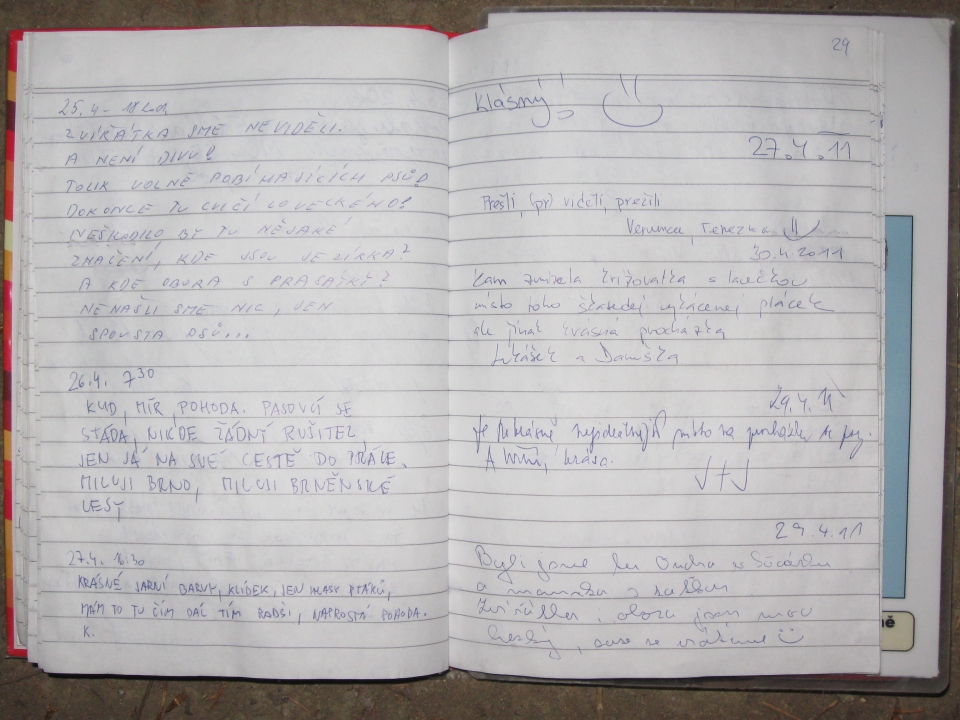 25.4 - 18 hod
ZVÍŘÁTKA SME NEVIDĚLI.
A NENÍ DIVU!
TOLIK VOLNĚ POBÍHAJÍCÍCH PSŮ!
DOKONCE TU CVIČÍ LOVECKÉHO!
NEŠKODILO BY TU NĚJAKÉ
ZNAČENÍ, KDE JSOU JEZÍRKA?
A KDE OBORA S PRASÁTKY?
NENAŠLI SME NIC, JEN
SPOUSTA PSŮ...
26.4. 7 30
KLID, MÍR, POHODA. PASOUCÍ SE
STÁDA, NIKDE ŽÁDNÝ RUŠITEL,
JEN JÁ NA SVÉ CESTĚ DO PRÁCE.
MILUJI BRNO, MILUJI BRNĚNSKÉ
LESY
27.4. 16:30
KRÁSNÉ JARNÍ BARVY, KLÍDEK, JEN HLASY PTÁKŮ,
MÁM TO TU ČÍM DÁL TÍM RADŠI, NAPROSTÁ POHODA.
K.
29
Klásný
27.4.11
Přešli, (pr) viděli, prežili
Verunka, Terezka
30.4.2011
kam zmizela křižovatka s lavičkou
místo toho škaredej vykácenej plácek
ale jinak krásná procházka
Lukášek a Danuška
29.4.11
je místo na procházku
A krása.
J+J
29.4.11
Byli jsme tu Ondra
a mamka s
Zvířátka i obora jsou moc
hezký, se vrátíme
ně